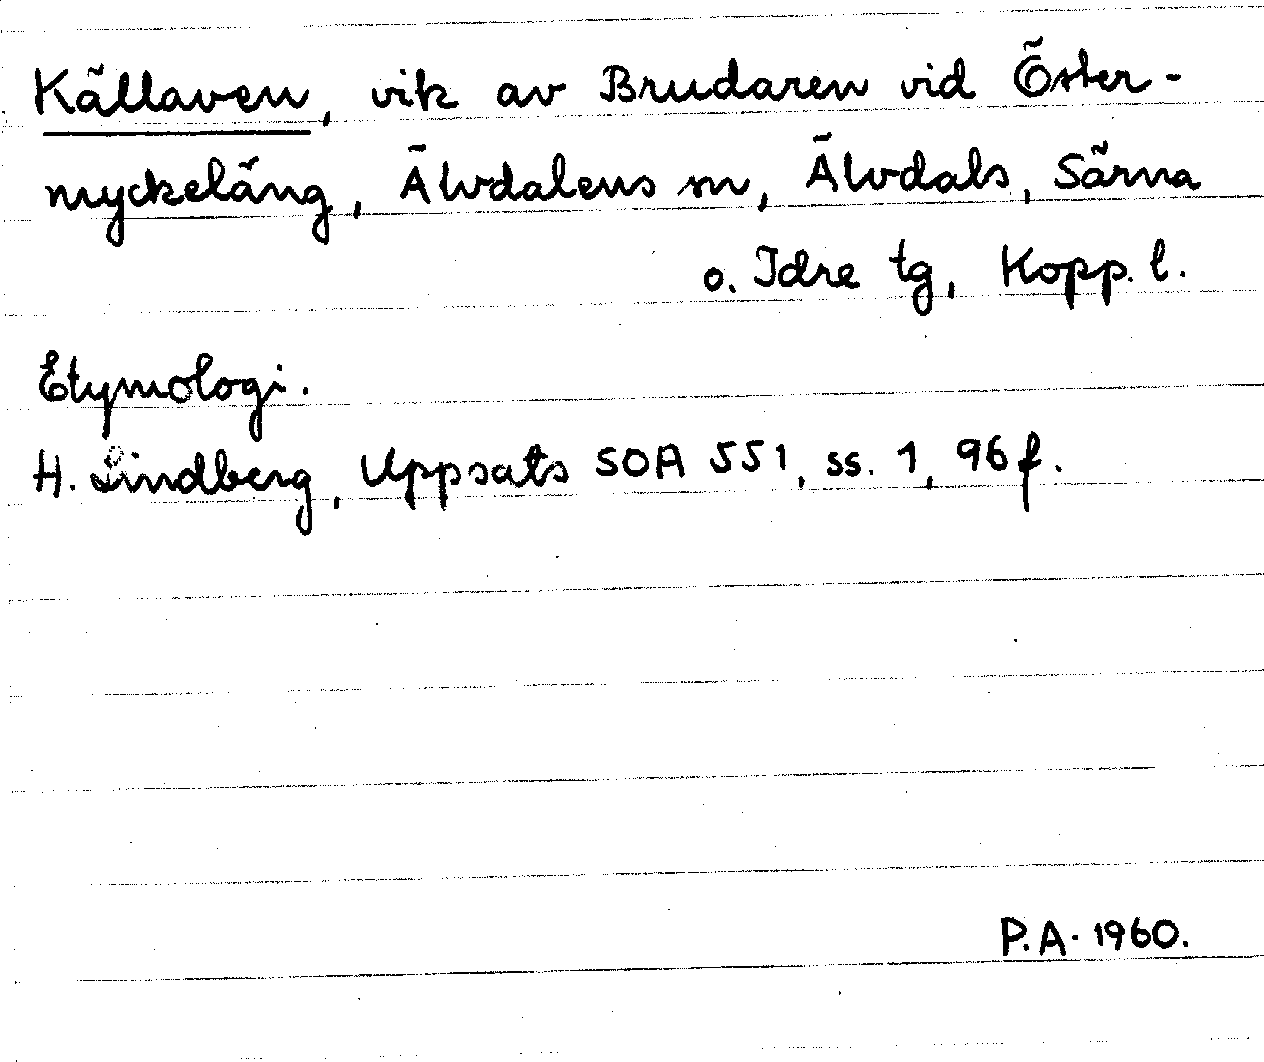 Källaven, vik av Brudaren vid Öster-
myckeläng, Älvdalens sn, Älvdals, Särna
o. Idre tg, Kopp. l.
Etymologi.
H. Lindberg, Uppsats SOA 551, ss. 1, 96 f.
P.A. 1960.